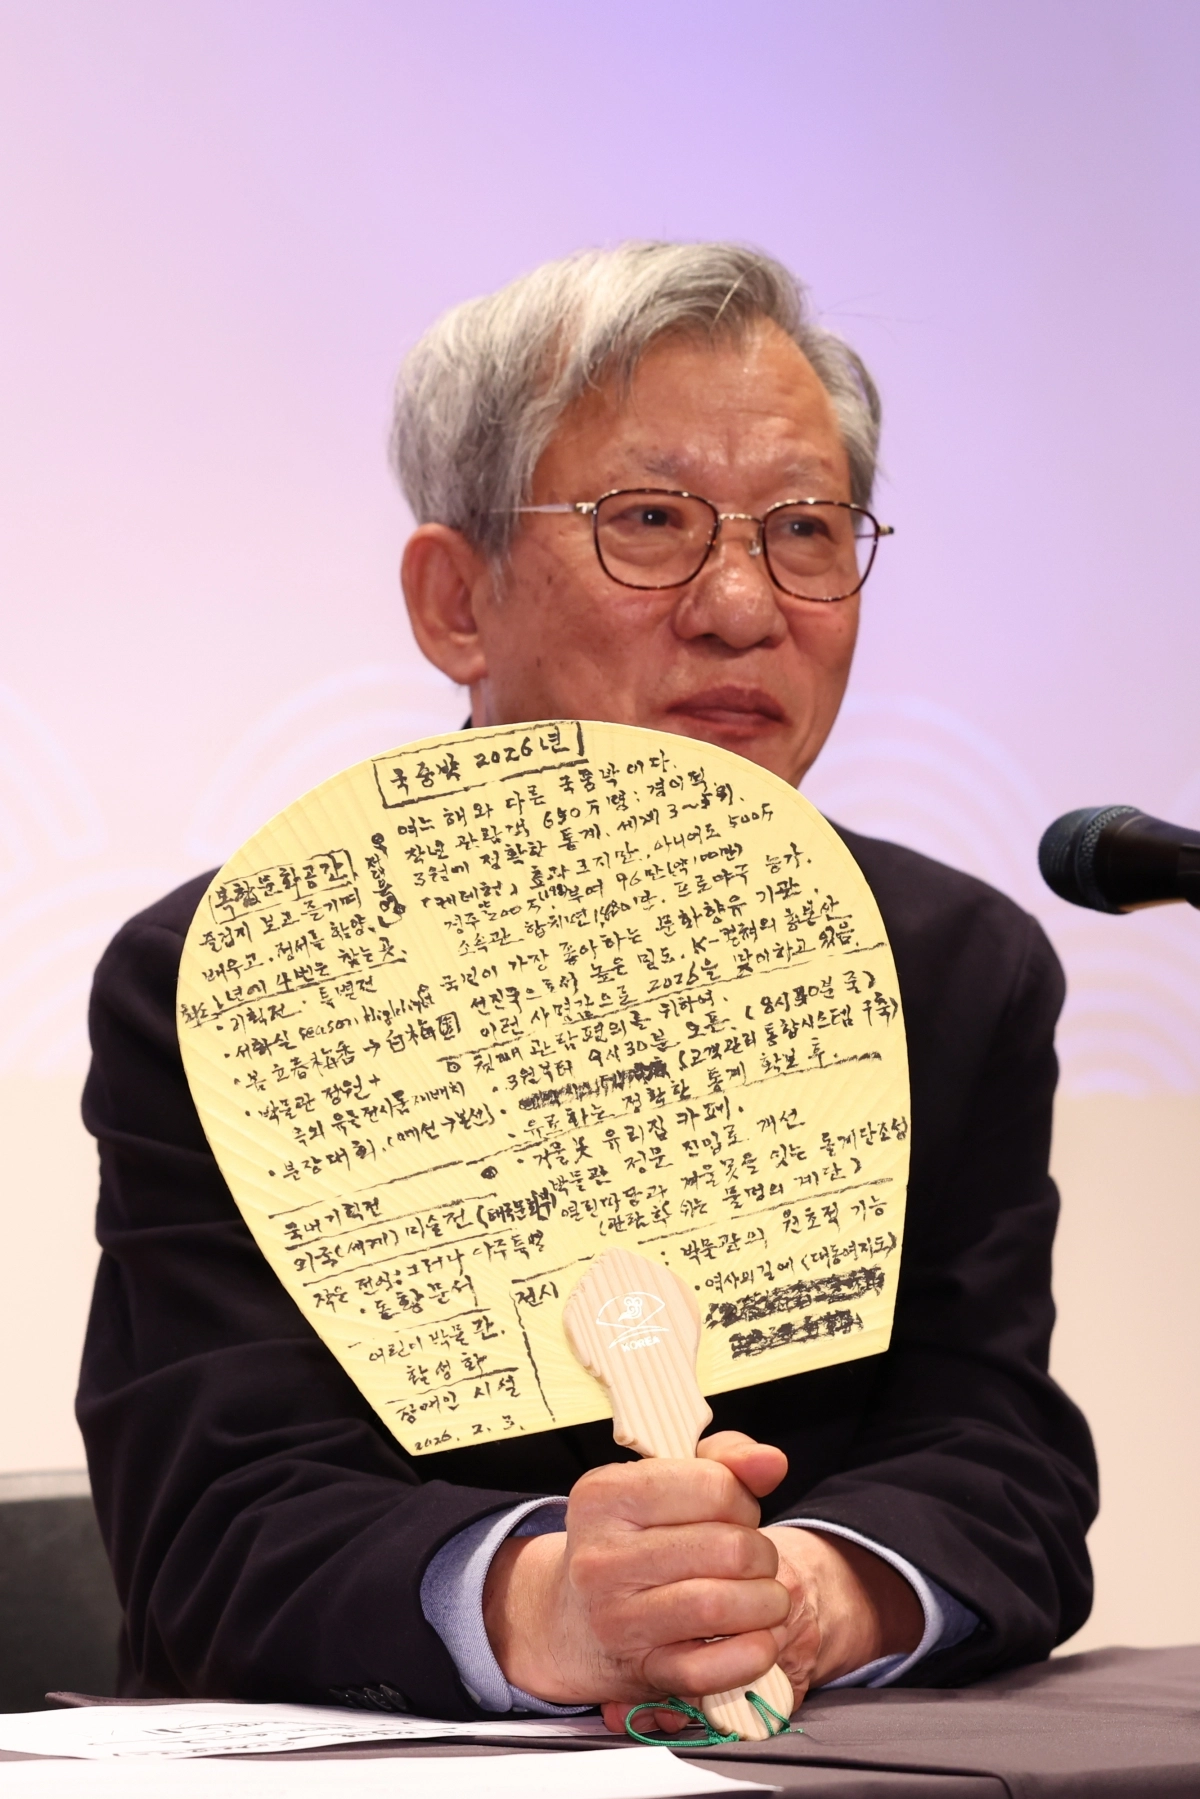 국중박 2026년
여느 해와 다른 국중박이다.
작년 관람객 650万명: 경이적.
3월에 정확한 통계. 세계 3~5위.
(케데헌) 효과 크지만, 아니어도 500万
경주 200万, 부여 96만(약 100만)
소속관 합치면 만. 프로야구 능가.
국민이 가장 좋아하는 문화향유 기관.
선진국으로서 높은 밀도. K-컬쳐의 총본산
이런 사명감으로 2026을 맞이하고 있음.
첫째 관람편의를 위하여.
· 3월부터 9시30분 오픈. (8시 분 줄)
(고객관리 통합시스템 구축)
· 유료화는 정확한 통계 확보 후.
· 거울못 유리집 카페.
박물관 정문 진입로 개선
열린마당과 거울못을 잇는 돌계단조성
(관람객 쉬는 풍경의 계단)
복합문화공간
즐겁게 보고 즐기며
배우고, 정서를 함양,
최소 1년에 4번은 찾는 곳.
· 기획전. 특별전
· 서화실 season highlight
· 봄 梅香 → 白梅園
· 박물관 정원 +
옥외 유물전시품 재배치
· 분장대회. (예선→본선)
국내기획전
외국(세계) 미술전 (태국문화부)
작은 전시: 그러나 아주 특별
· 돈황문서
어린이 박물관.
활성화
장애인 시설
2026. 2. 3.
전시
: 박물관의 원초적 기능
· 역사의 길에 (대동여지도)
KOREA